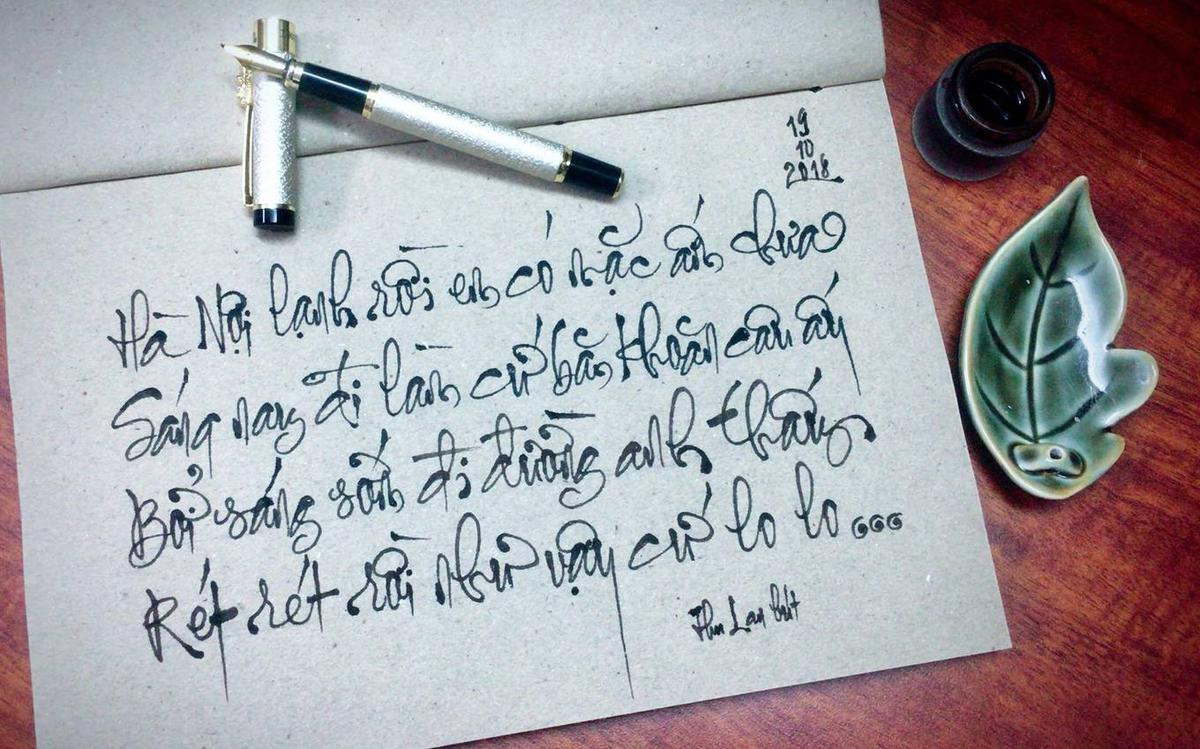 19
10
2018
Hà Nội lạnh rồi em có mặc ấm chưa
Sáng nay đi làm cứ băn khoăn câu ấy
Bởi sáng sớm đi đường anh thấy
Rét rét rồi như vậy cứ lo lo...
Thu Lan